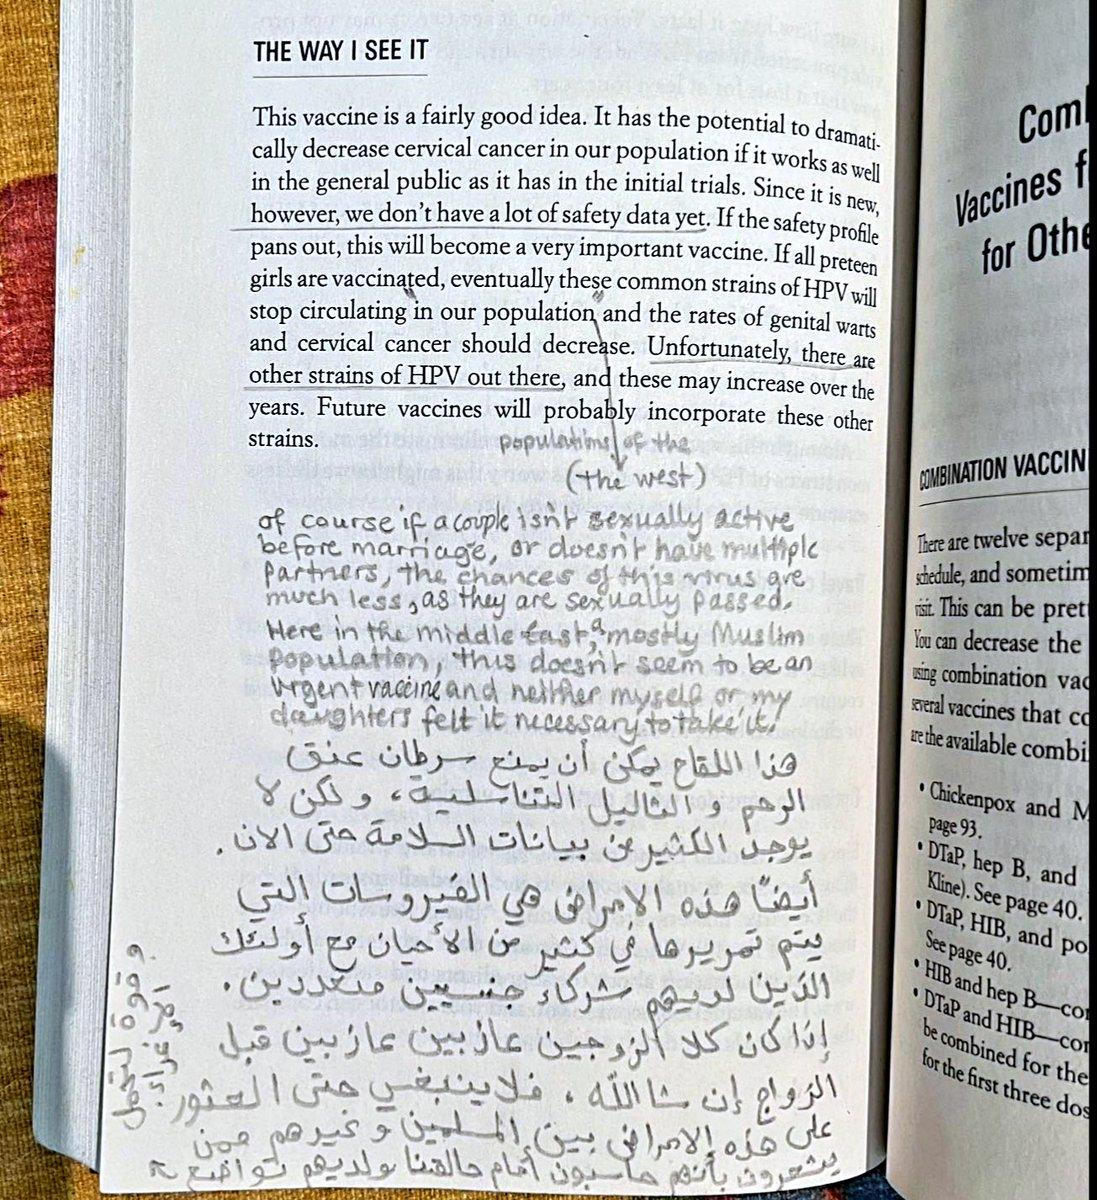 THE WAY I SEE IT
This vaccine is a fairly good idea. It has the potential to dramati-
cally decrease cervical cancer in our population if it works as well
in the general public as it has in the initial trials. Since it is new,
however, we don't have a lot of safety data yet. If the safety profile
pans out, this will become a very important vaccine. If all preteen
girls are vaccinated, eventually these common strains of HPV will
stop circulating in our population and the rates of genital warts
and cervical cancer should decrease. Unfortunately, there are
other strains of HPV out there, and these may increase over the
years. Future vaccines will probably incorporate these other
strains.
populations of the
(the west)
of course if a couple isn't sexually active
before marriage, or doesn't have multiple
partners, the chances of this virus are
much less, as they are sexually passed.
Here in the middle East, a mostly Muslim
population, this doesn't seem to be an
urgent vaccine and neither myself or my
daughters felt it necessary to take it!
هذا اللقاح يمكن أن يمنع سرطان عنق
الرحم و الثاليل التناسلية، و لكن لا
يوجد الكثير من بيانات السلامة حتى الان.
أيضاً هذه الامراض هي الفيروسات التي
يتم تمريرها في كثير من الأحيان مع أولئك
الذين لديهم شركاء جنسيين متعددين.
إذا كان كلا الزوجين عازبين عازبين قبل
الزواج إن شا الله، فلا ينبغي حتى العثور
على هذه الامراض بين المسلمين و غيرهم ممن
يشعرون بأنهم محاسبون أمام خالقنا ولديهم تواضع
Coml
Vaccines f
for Othe
COMBINATION VACCIN
There are twelve separ
schedule, and sometim
visit. This can be pret
You can decrease the
using combination vac
several vaccines that co
are the available combi
• Chickenpox and M
page 93.
• DTaP, hep B, and
Kline). See page 40.
• DTaP, HIB, and po
See page 40.
• HIB and hep B—co
• DTaP and HIB—co
be combined for the
for the first three dos